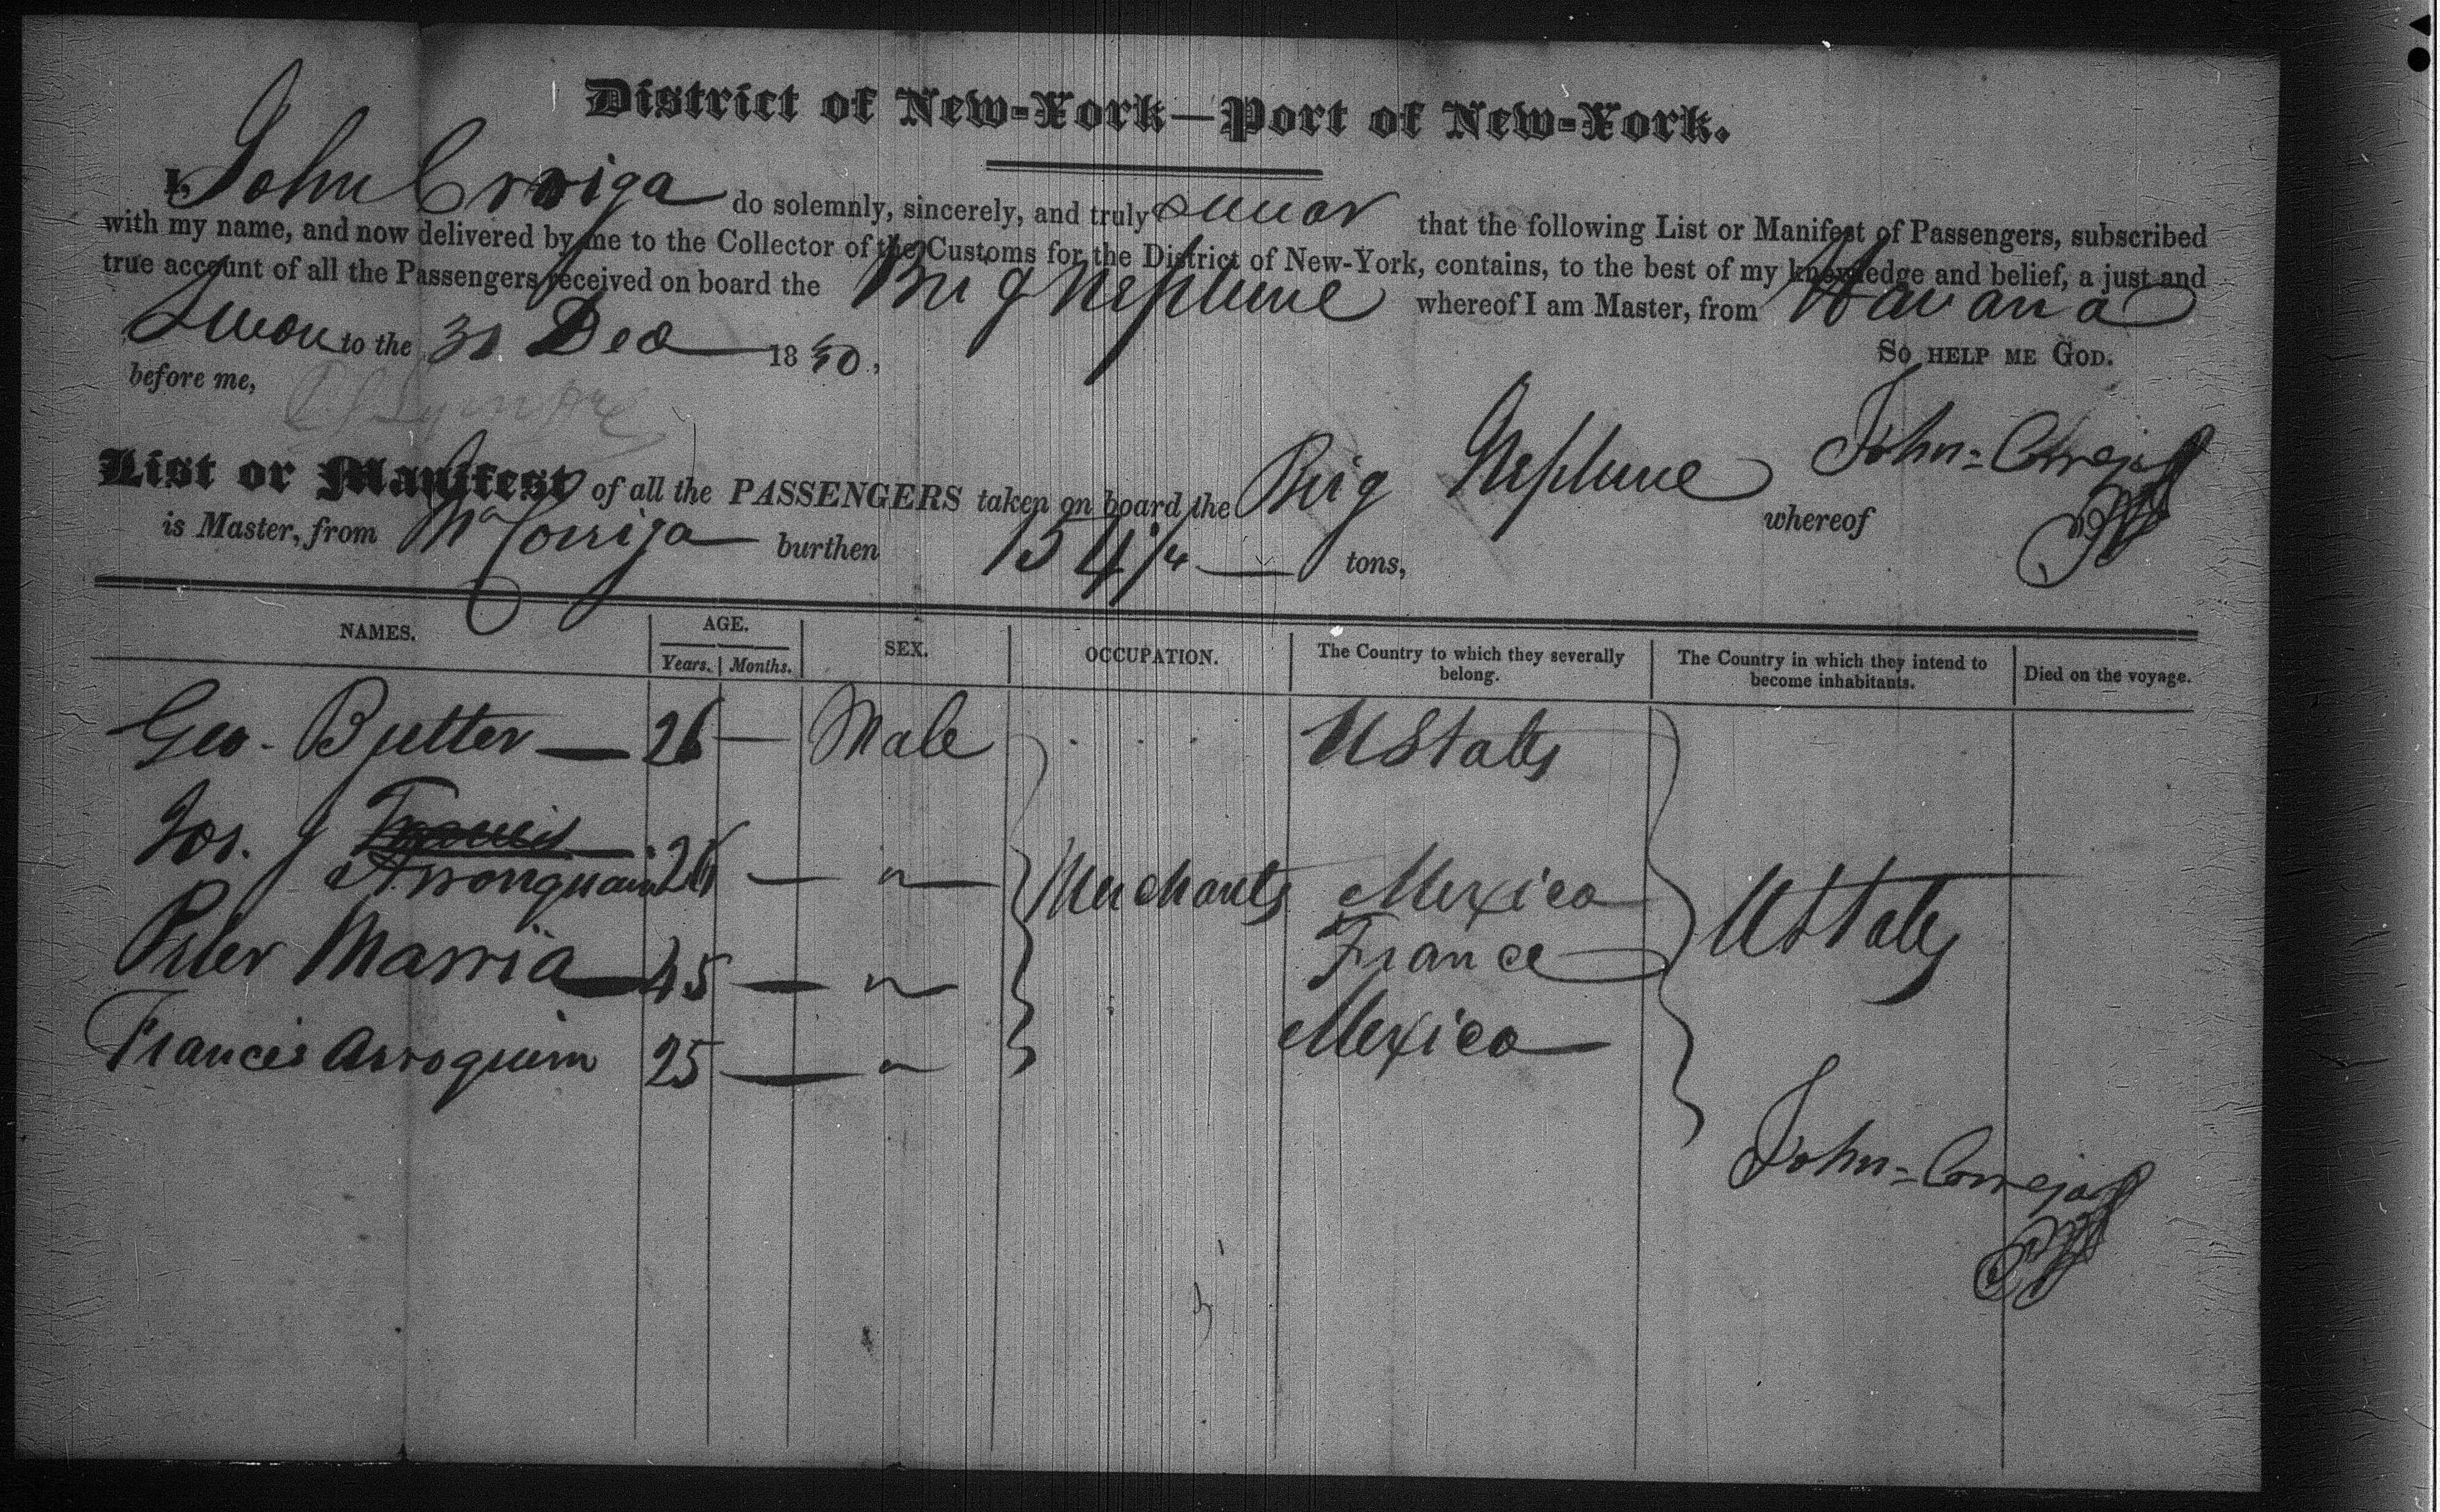 District of New-York—Port of New-York.
I, John Corriga do solemnly, sincerely, and truly swear that the following List or Manifest of Passengers, subscribed
with my name, and now delivered by me to the Collector of the Customs for the District of New-York, contains, to the best of my knowledge and belief, a just and
true account of all the Passengers received on board the Brig Neptune whereof I am Master, from Havana
Sworn to the 31 Dec 1850, So help me God.
before me,
John Correja
List or Manifest of all the PASSENGERS taken on board the Brig Neptune whereof
is Master, from Corriga burthen 154 tons,
NAMES. AGE. SEX. OCCUPATION. The Country to which they severally belong. The Country in which they intend to become inhabitants. Died on the voyage.
Years. Months.
Geo. Butter — 26 — Male UStates
Jos. J Francis
Arronguain 26 — " — Merchants Mexico UStates
Peter Marria — 45 — " — France
Francis Arroguim 25 — " Mexico
John Correja